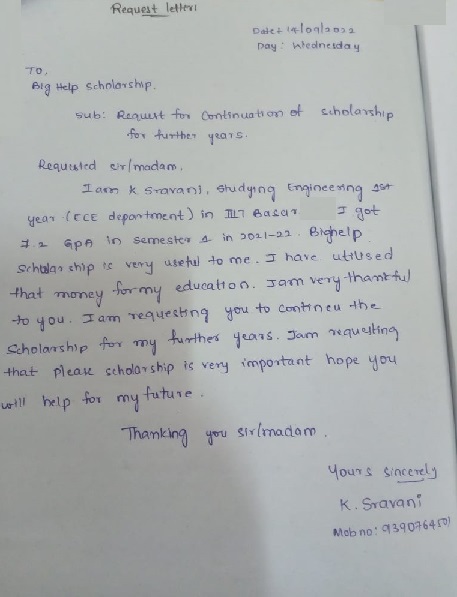 Request letter:
Date: 14/09/2022
Day: Wednesday
To,
Big Help scholarship.
Sub: Request for Continuation of scholarship
for further years.
Requested sir/madam,
I am K Sravani, studying Engineering 1st
year (ECE department) in IIIT Basar I got
7.2 GPA in semester 1 in 2021-22. Bighelp
Scholar ship is very useful to me. I have utilised
that money for my education. I am very thankful
to you. I am requesting you to contineu the
Scholarship for my further years. I am requesting
that please scholarship is very important hope you
will help for my future.
Thanking you sir/madam.
Yours sincerely
K. Sravani
Mob no: 9390764501